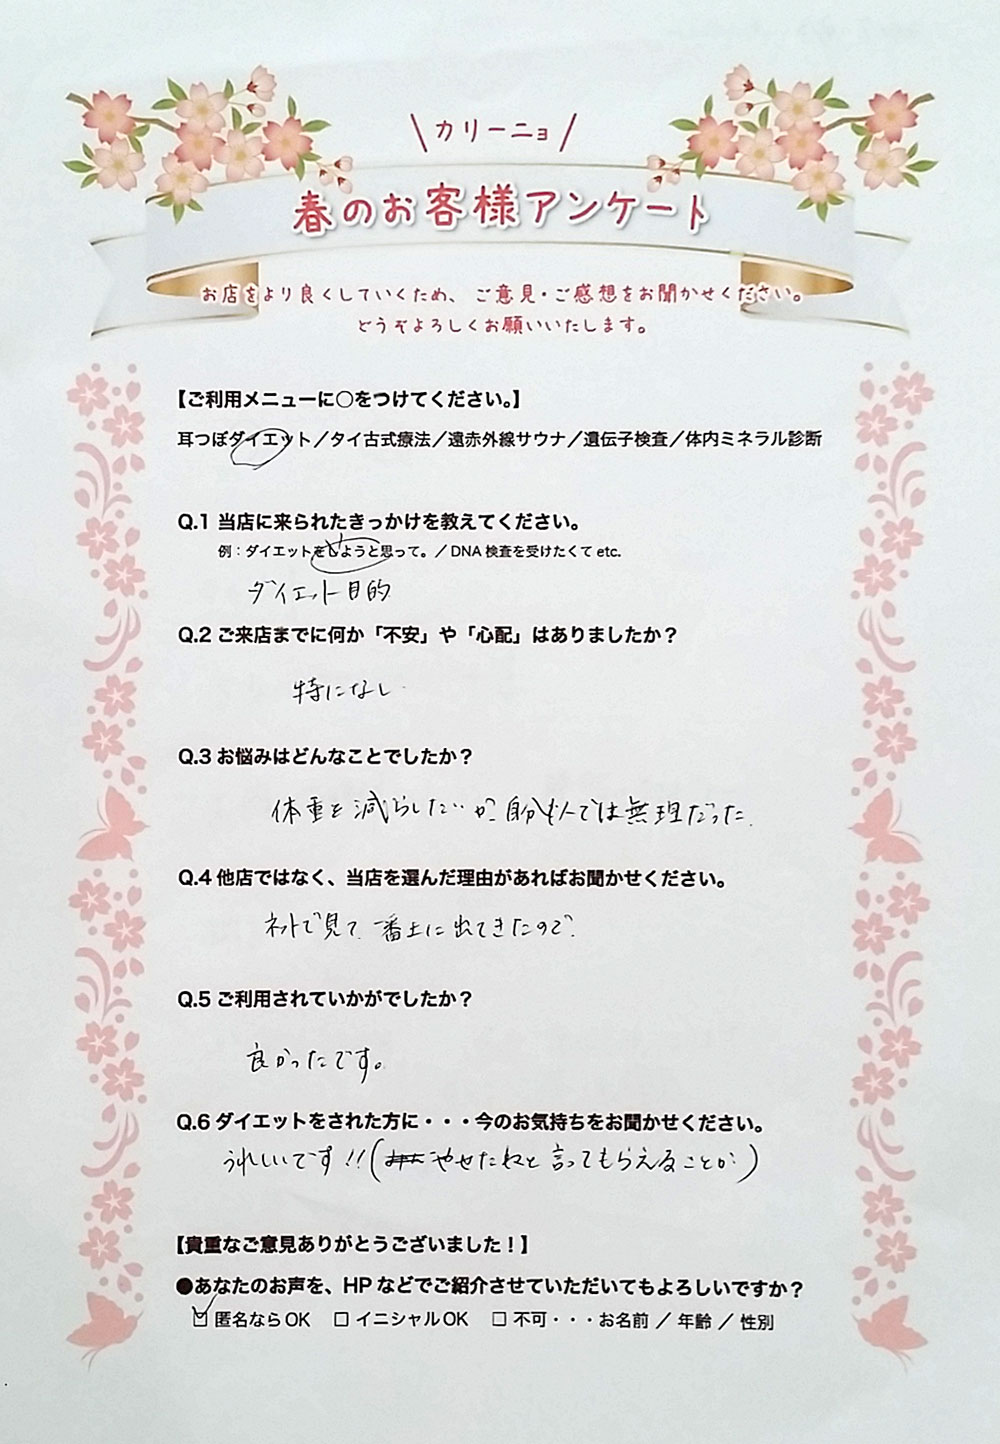 \ カリーニョ /
春のお客様アンケート
お店をより良くしていくため、ご意見・ご感想をお聞かせください。
どうぞよろしくお願いいたします。
【ご利用メニューに○をつけてください。】
耳つぼダイエット／タイ古式療法／遠赤外線サウナ／遺伝子検査／体内ミネラル診断
Q.1 当店に来られたきっかけを教えてください。
例：ダイエットをしようと思って。／DNA検査を受けたくて etc.
ダイエット目的
Q.2 ご来店までに何か「不安」や「心配」はありましたか？
特になし
Q.3 お悩みはどんなことでしたか？
体重を減らしたいが、自分1人では無理だった。
Q.4 他店ではなく、当店を選んだ理由があればお聞かせください。
ネットで見て、一番上に出てきたので、
Q.5 ご利用されていかがでしたか？
良かったです。
Q.6 ダイエットをされた方に・・・今のお気持ちをお聞かせください。
うれしいです!!(やせたねと言ってもらえることが)
【貴重なご意見ありがとうございました！】
●あなたのお声を、HPなどでご紹介させていただいてもよろしいですか？
☑ 匿名ならOK □ イニシャルOK □ 不可・・・お名前 ／ 年齢 ／ 性別